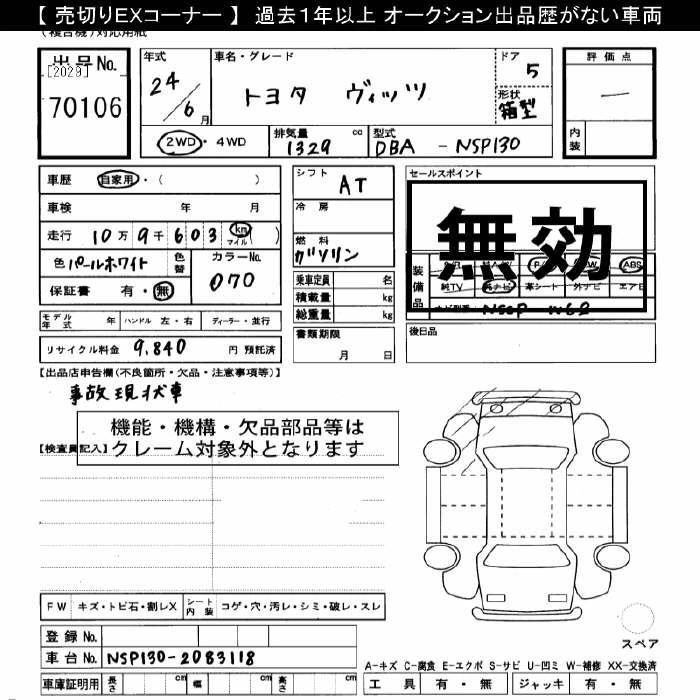 【 売切りEXコーナー 】 過去1年以上 オークション出品歴がない車両
(複合機)対応用紙
出品No.
[2029]
70106
年式
24/6月
車名・グレード
トヨタ ヴィッツ
ドア
5
形状
箱型
評価点
―
内装
2WD・4WD
排気量 cc
1329
型式
DBA - NSP130
車歴 自家用・( )
車検 年 月
走行 10万9千603 km マイル( )
色 パールホワイト 色替
カラーNo.
070
保証書 有・無
シフト AT
冷房
燃料
ガソリン
乗車定員 名
積載量 kg
総重量 kg
セールスポイント
無効
装備品
ABS
純TV 純ナビ 革シート 外ナビ エアB
モデル年式 年 ハンドル 左・右 ディーラー・並行
リサイクル料金 9,840 円 預託済
書類期限
月 日
後日品
【出品店申告欄(不良箇所・欠品・注意事項等)】
事故現状車
機能・機構・欠品部品等は
クレーム対象外となります
【検査員記入】
FW キズ・トビ石・割レX シート内装 コゲ・穴・汚レ・シミ・破レ・スレ
登録No.
車台No. NSP130-2083118
車庫証明用 長さ cm 幅 cm 高さ cm
スペア
A-キズ C-腐食 E-エクボ S-サビ U-凹ミ W-補修 XX-交換済
工具 有・無 ジャッキ 有・無